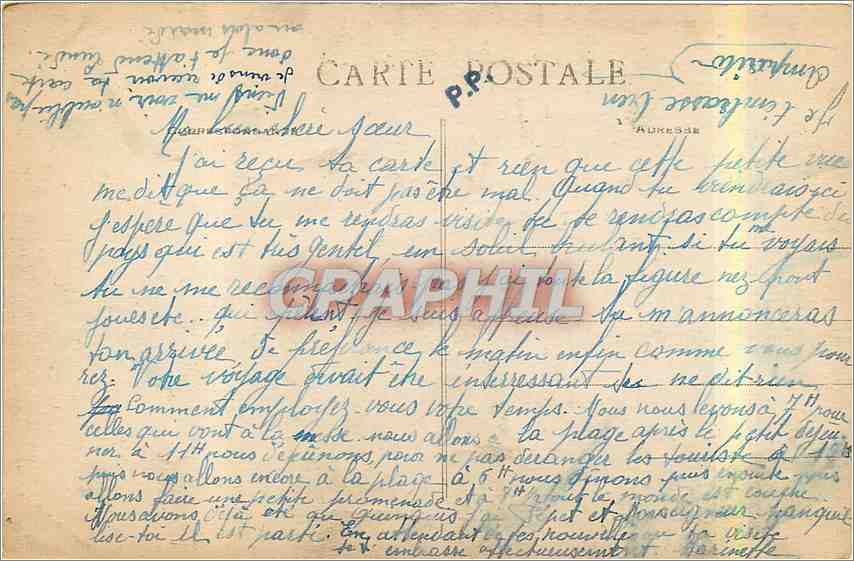 CARTE POSTALE
P.P.
CORRESPONDANCE
ADRESSE
Ma bien chère Sœur
J'ai reçu ta carte et rien que cette petite vue
me dit que ça ne doit pas être mal. Quand tu viendras ici
j'espère que tu me rendras visite tu te rendras compte du
pays qui est très gentil, un soleil brulant. si tu me voyais
tu ne me reconnaitrais pas j'ai toute la figure nez front
joues etc.. qui pèlent je suis affreuse tu m'annonceras
ton arrivée, de préférence le matin enfin comme vous pour
rez. Votre voyage devait être interressant ne dit rien
Comment employez-vous votre temps. Nous nous levons à 7H pour
celles qui vont à la messe. nous allons à la plage après le petit déjeu
ner à 11H nous déjeunons, pour ne pas déranger les touristes
puis nous allons encore à la plage à 6H nous dinons puis ensuite nous
allons faire une petite promenade et à tout le monde est couché.
Nous avons déjà été au et Monseigneur tranquil
lise-toi il est parti. En attendant de tes nouvelles ou ta visite
je t'embrasse affectueusement
Je t'embrasse bien
Viens me voir, n'oublie pas
Je viens de recevoir ta carte
donc je t'attend lundi
ou alors mardi
CPAPHIL